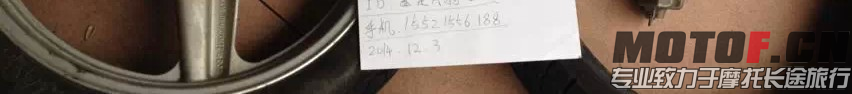 手机.15521556188
2014.12.3
MOTOF.CN
专业致力于摩托长途旅行